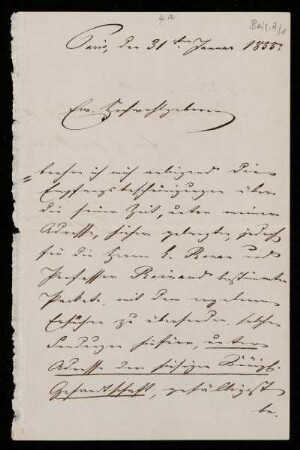 Paris, den 31ten Januar 1855.
Ew. Hochwohlgeboren
beehre ich mich anliegend die
Empfangsbescheinigungen über
die seiner Zeit, unter meiner
Adresse, hieher gelangten, jedoch
für die Herrn E. Renan und
Professor Reinaud bestimmten
Packete, mit dem ergebenen
Ersuchen zu übersenden, solche
Sendungen hieher, unter
Adresse der hiesigen Königl.
Gesandtschaft, gefälligst